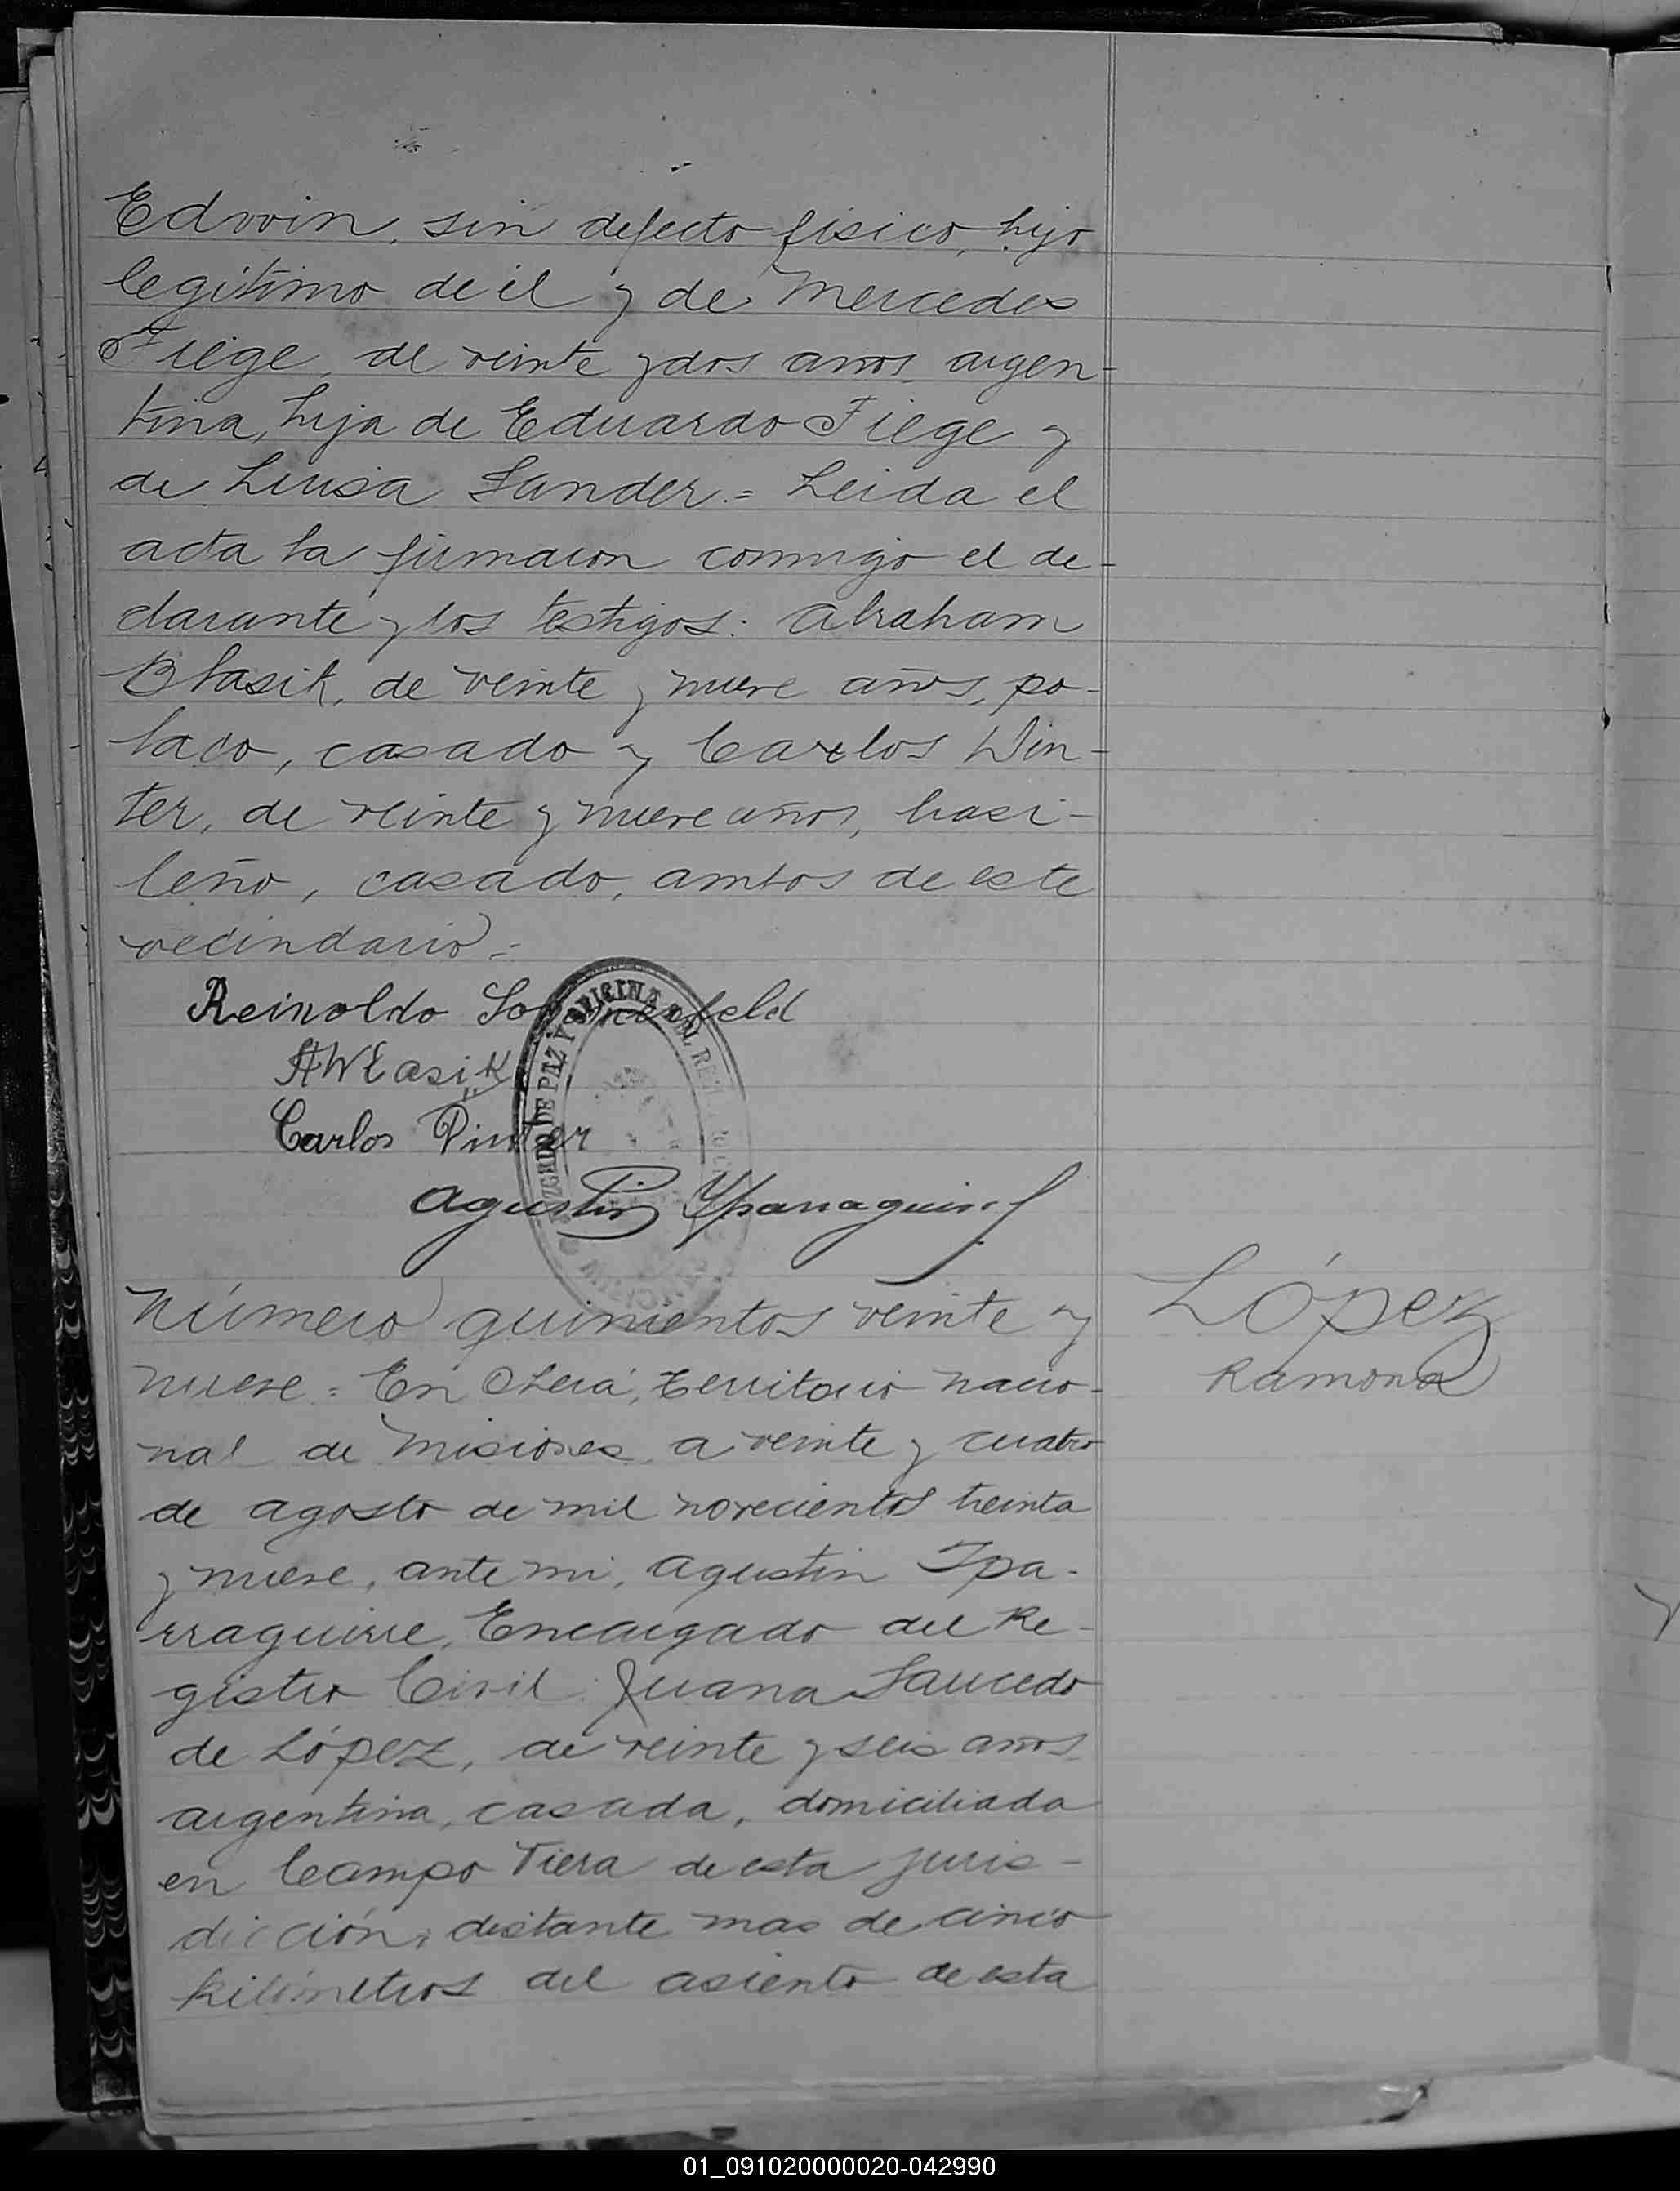 Edwin, sin defecto físico, hijo
legítimo de él y de Mercedes
Fiege, de veinte y dos años, argen-
tina, hija de Eduardo Fiege y
de Luisa Sander.= Leida el
acta la firmaron conmigo el de-
clarante y los testigos: Abraham
Blasik, de veinte y nueve años, po-
laco, casado y Carlos Win-
ter, de veinte y nueve años, brasi-
leño, casado, ambos de este
vecindario.=
Reinoldo
AWlasik
Carlos
Agustin Yparraguirre
JUZGADO DE PAZ Y OFICINA DEL
Número quinientos veinte y
nueve = En Oberá, territorio nacio-
nal de Misiones, a veinte y cuatro
de agosto de mil novecientos treinta
y nueve, ante mi, Agustin Ipa-
rraguirre, Encargado del Re-
gistro Civil: Juana Saucedo
de López, de veinte y seis años
argentina, casada, domiciliada
en Campo Viera de esta juris-
dicción, distante mas de cinco
kilómetros del asiento de esta
López
Ramona
01_091020000020-042990